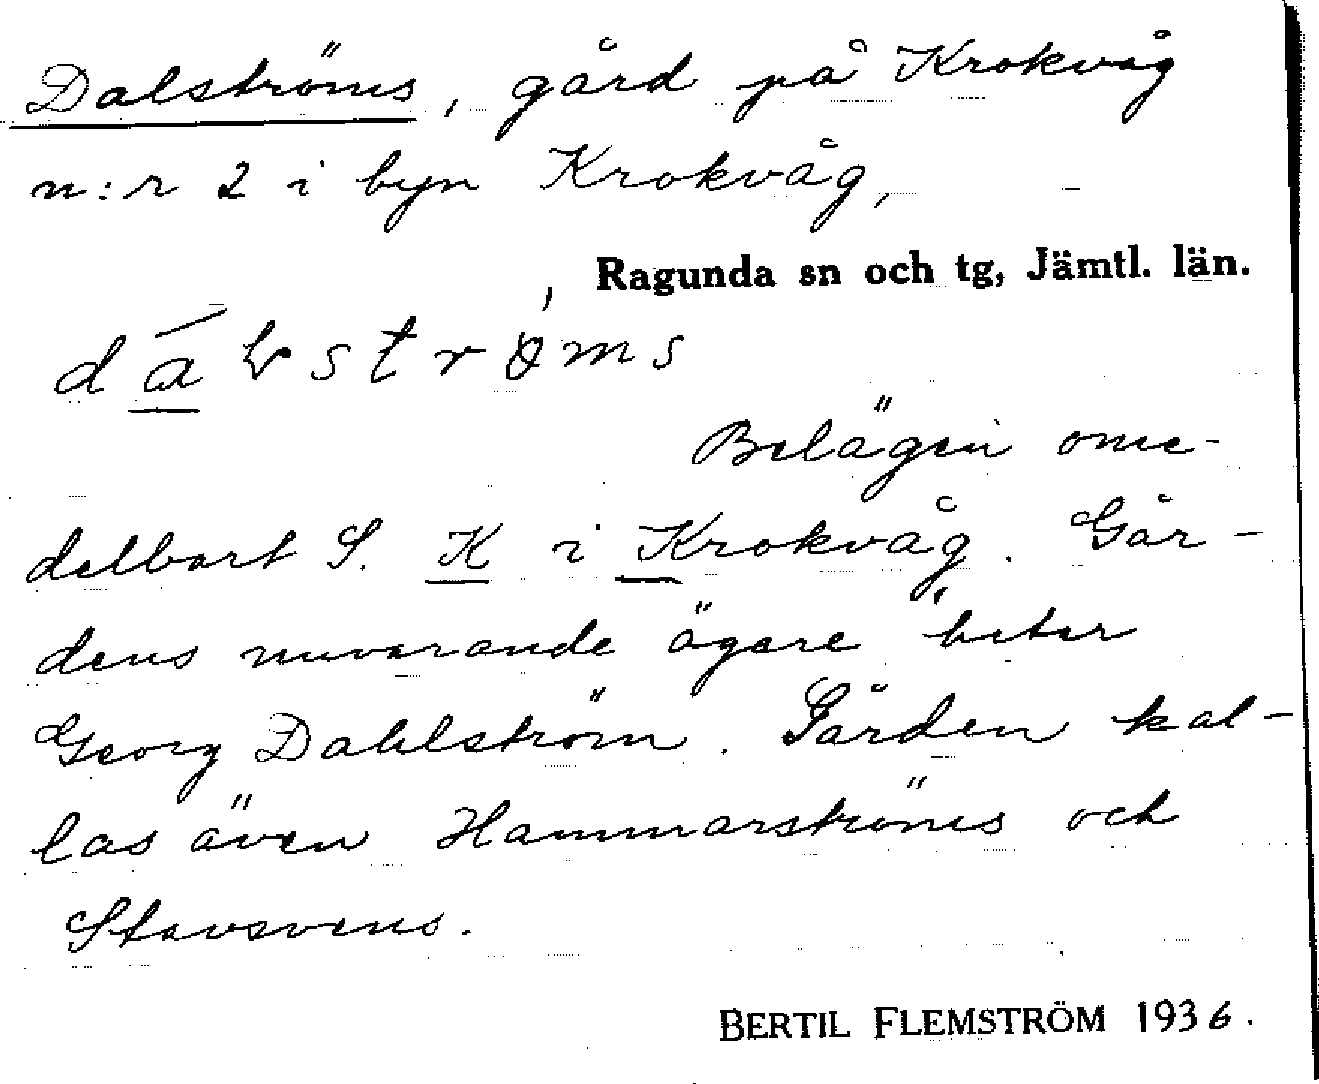 Dalströms, gård på Krokvåg
n:r 2 i byn Krokvåg,
Ragunda sn och tg, Jämtl. län.
Belägen ome-
delbart S. K i Krokvåg. Går-
dens nuvarande ägare heter
Georg Dahlström. Gården kal-
las även Hammarströms och
Stavsvens.
BERTIL FLEMSTRÖM 1936.